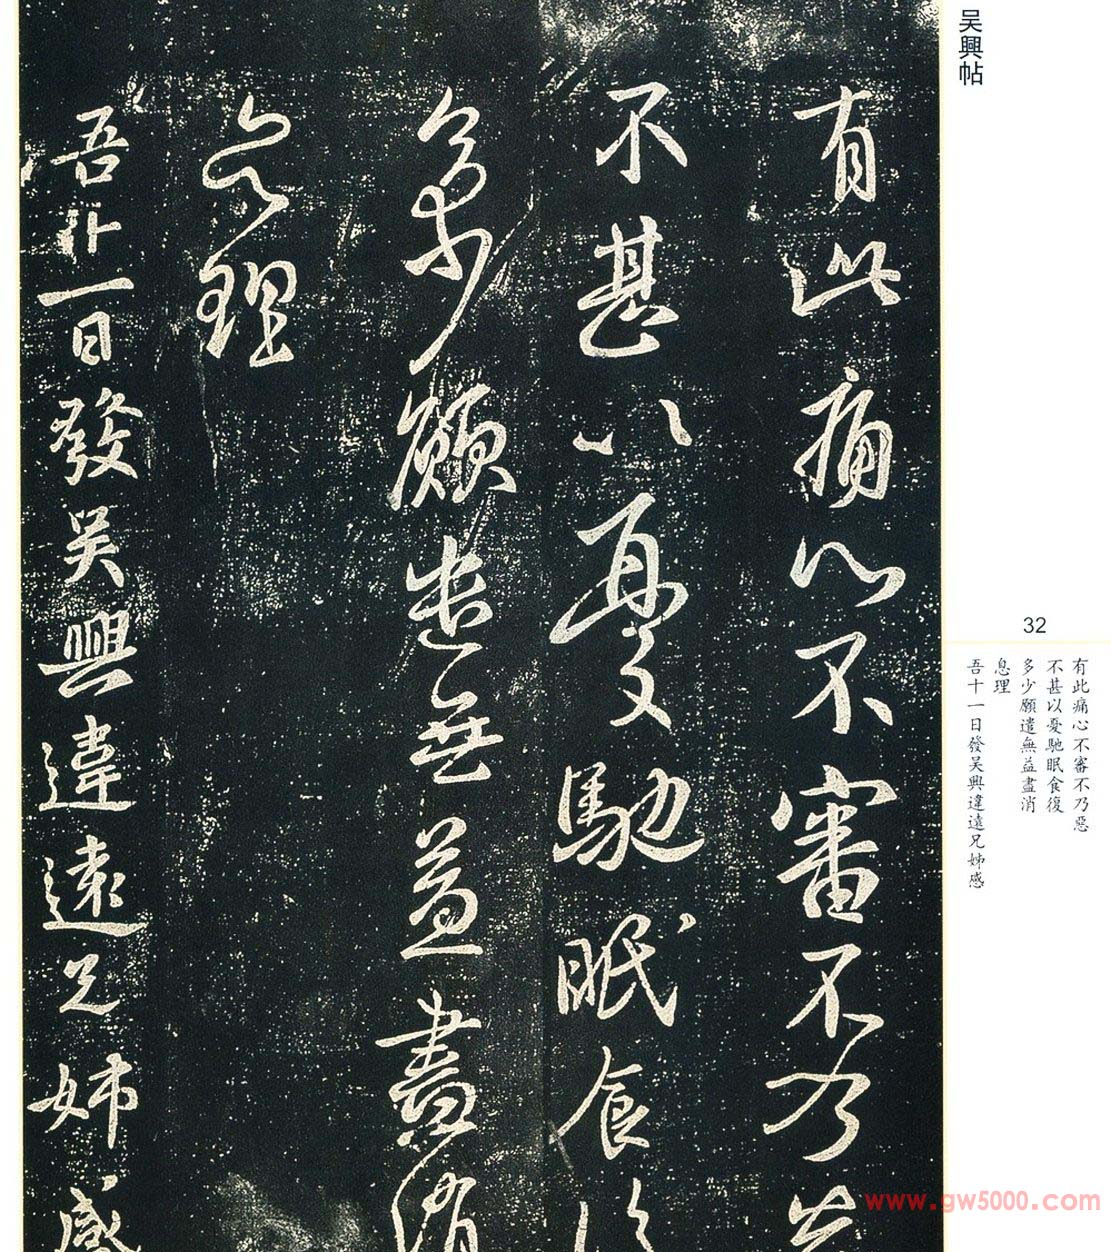 吴興帖
有此痛心不審不乃惡
不甚以憂馳眠食復
多少願遣無益盡消
息理
吾十一日發吴興違遠兄姊感
32
有此痛心不審不乃惡
不甚以憂馳眠食復
多少願遣無益盡消
息理
吾十一日發吴興違遠兄姊感
www.gw5000.com